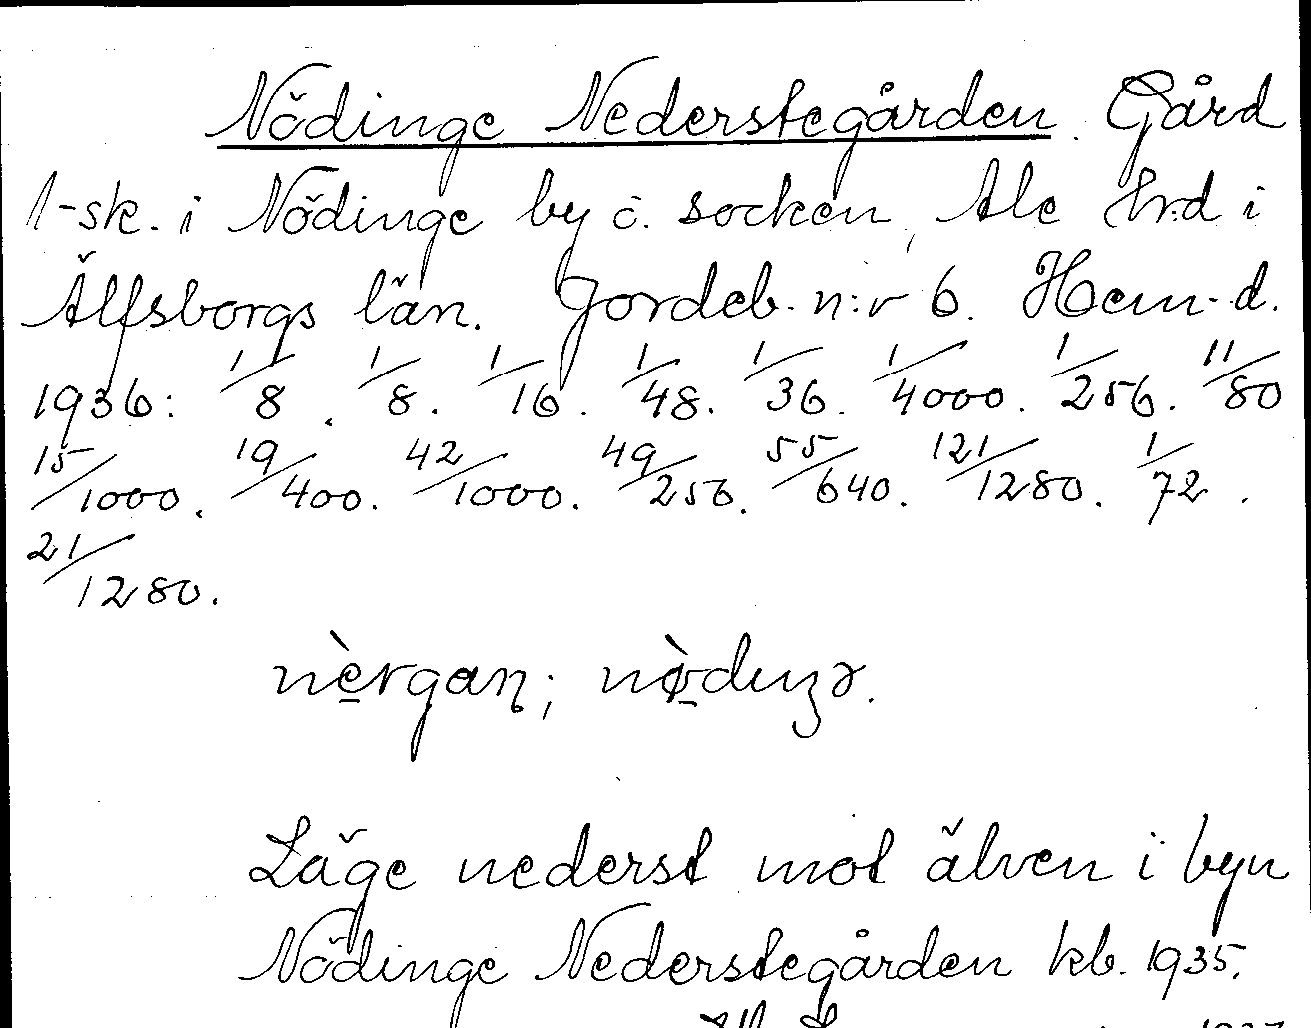 Nödinge Nederstegården. Gård
1-sk. i Nödinge by o. socken, Ale hrd i
Älfsborgs län. Jordeb. n:r 6. Hem-d.
1936: 1/8. 1/8. 1/16. 1/48. 1/36. 1/4000. 1/256. 11/80
15/1000. 19/400. 42/1000. 49/256. 55/640. 121/1280. 1/72.
21/1280.
nè̱rgan; nø̱̀dıŋə.
Läge nederst mot älven i byn
Nödinge Nederstegården kb. 1935.